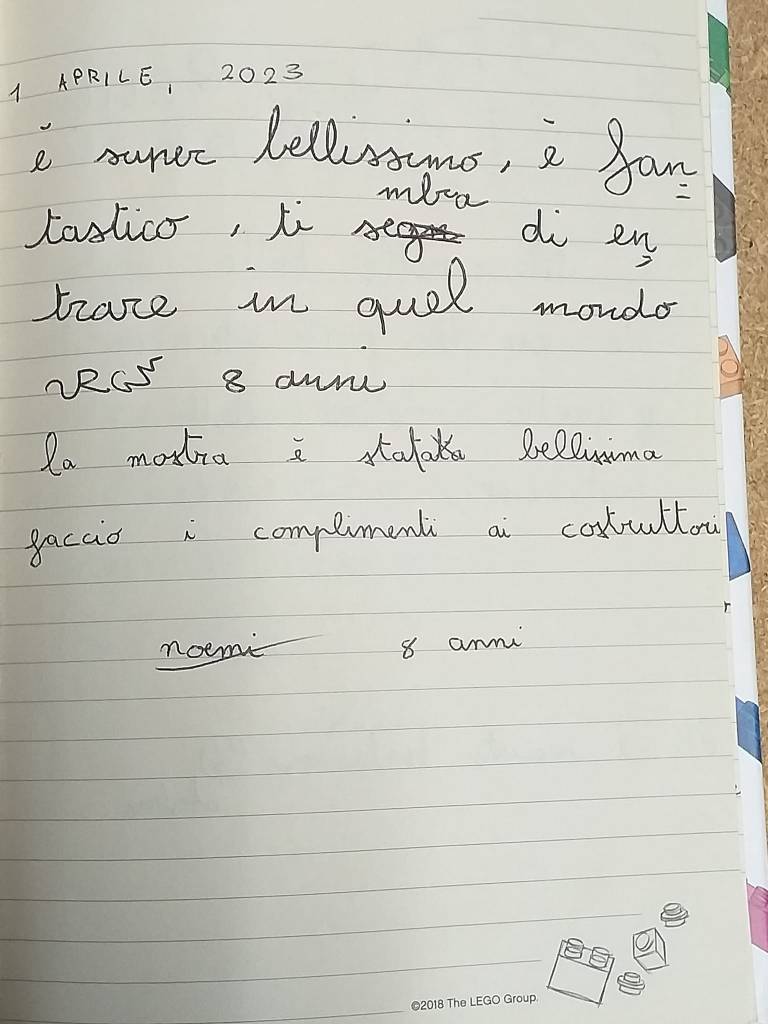 1 APRILE, 2023
è super bellissimo, è fan=
mbra
tastico, ti se di en
trare in quel mondo
8 anni
la mostra è stata bellissima
faccio i complimenti ai costruttori
noemi 8 anni
©2018 The LEGO Group.